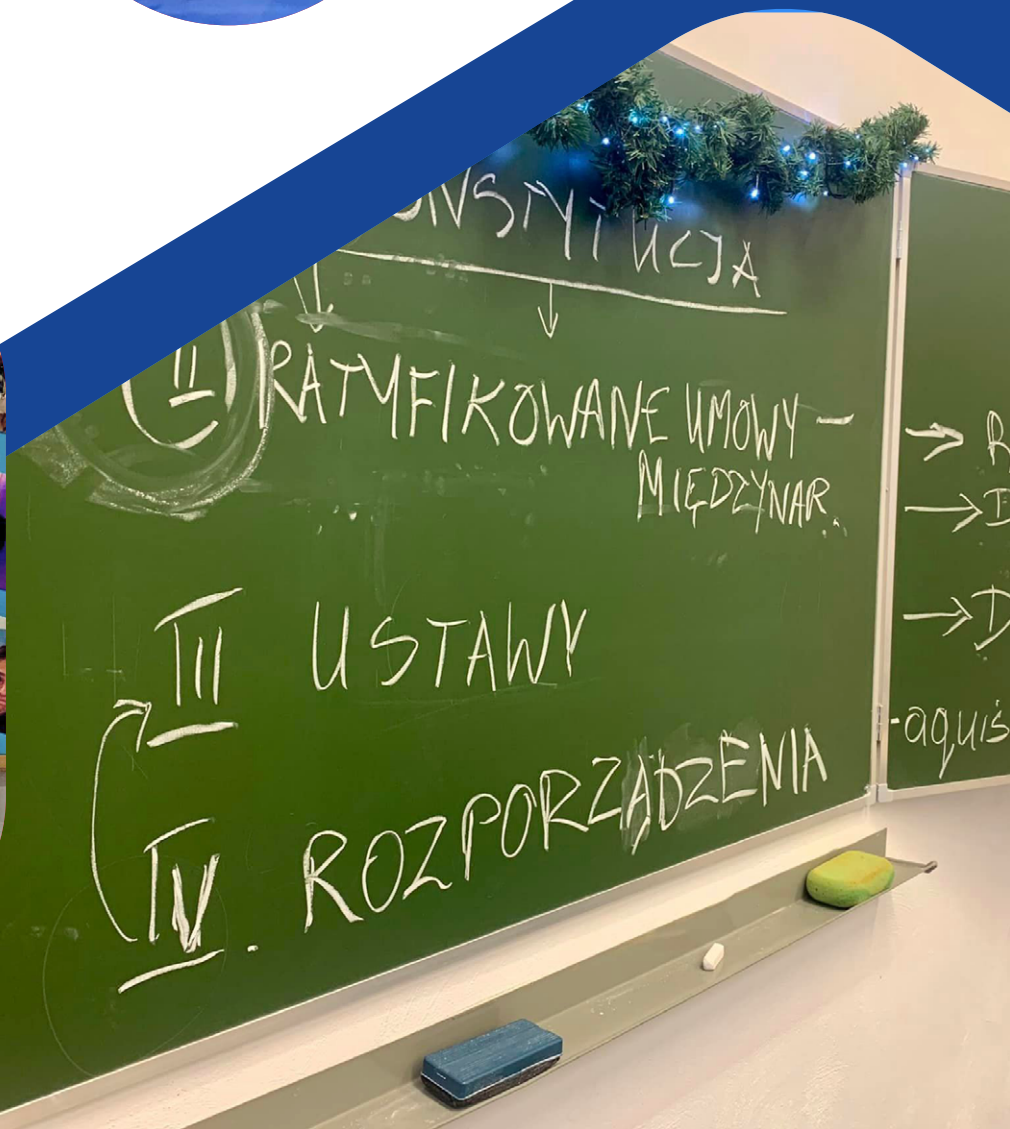 ONSTYTUCJA
II RATYFIKOWANE UMOWY –
MIĘDZYNAR.
III USTAWY
IV. ROZPORZĄDZENIA
→ R
→ D
-aquis